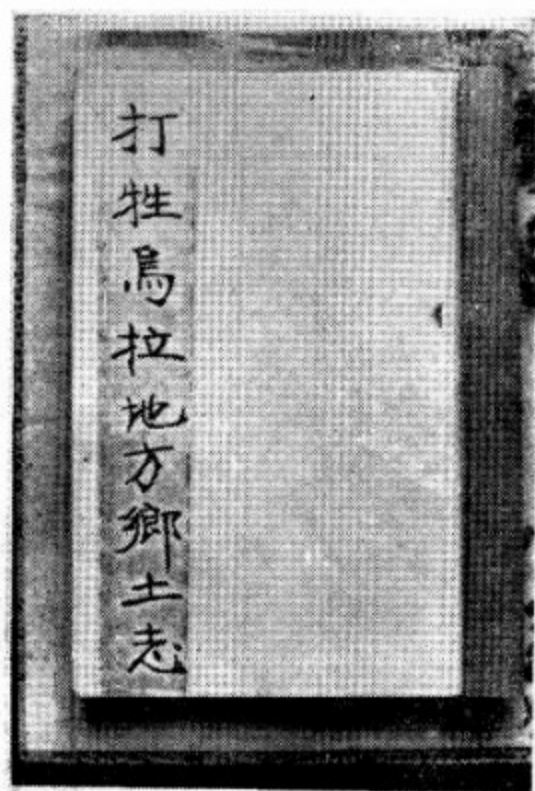 打牲烏拉地方鄉土志